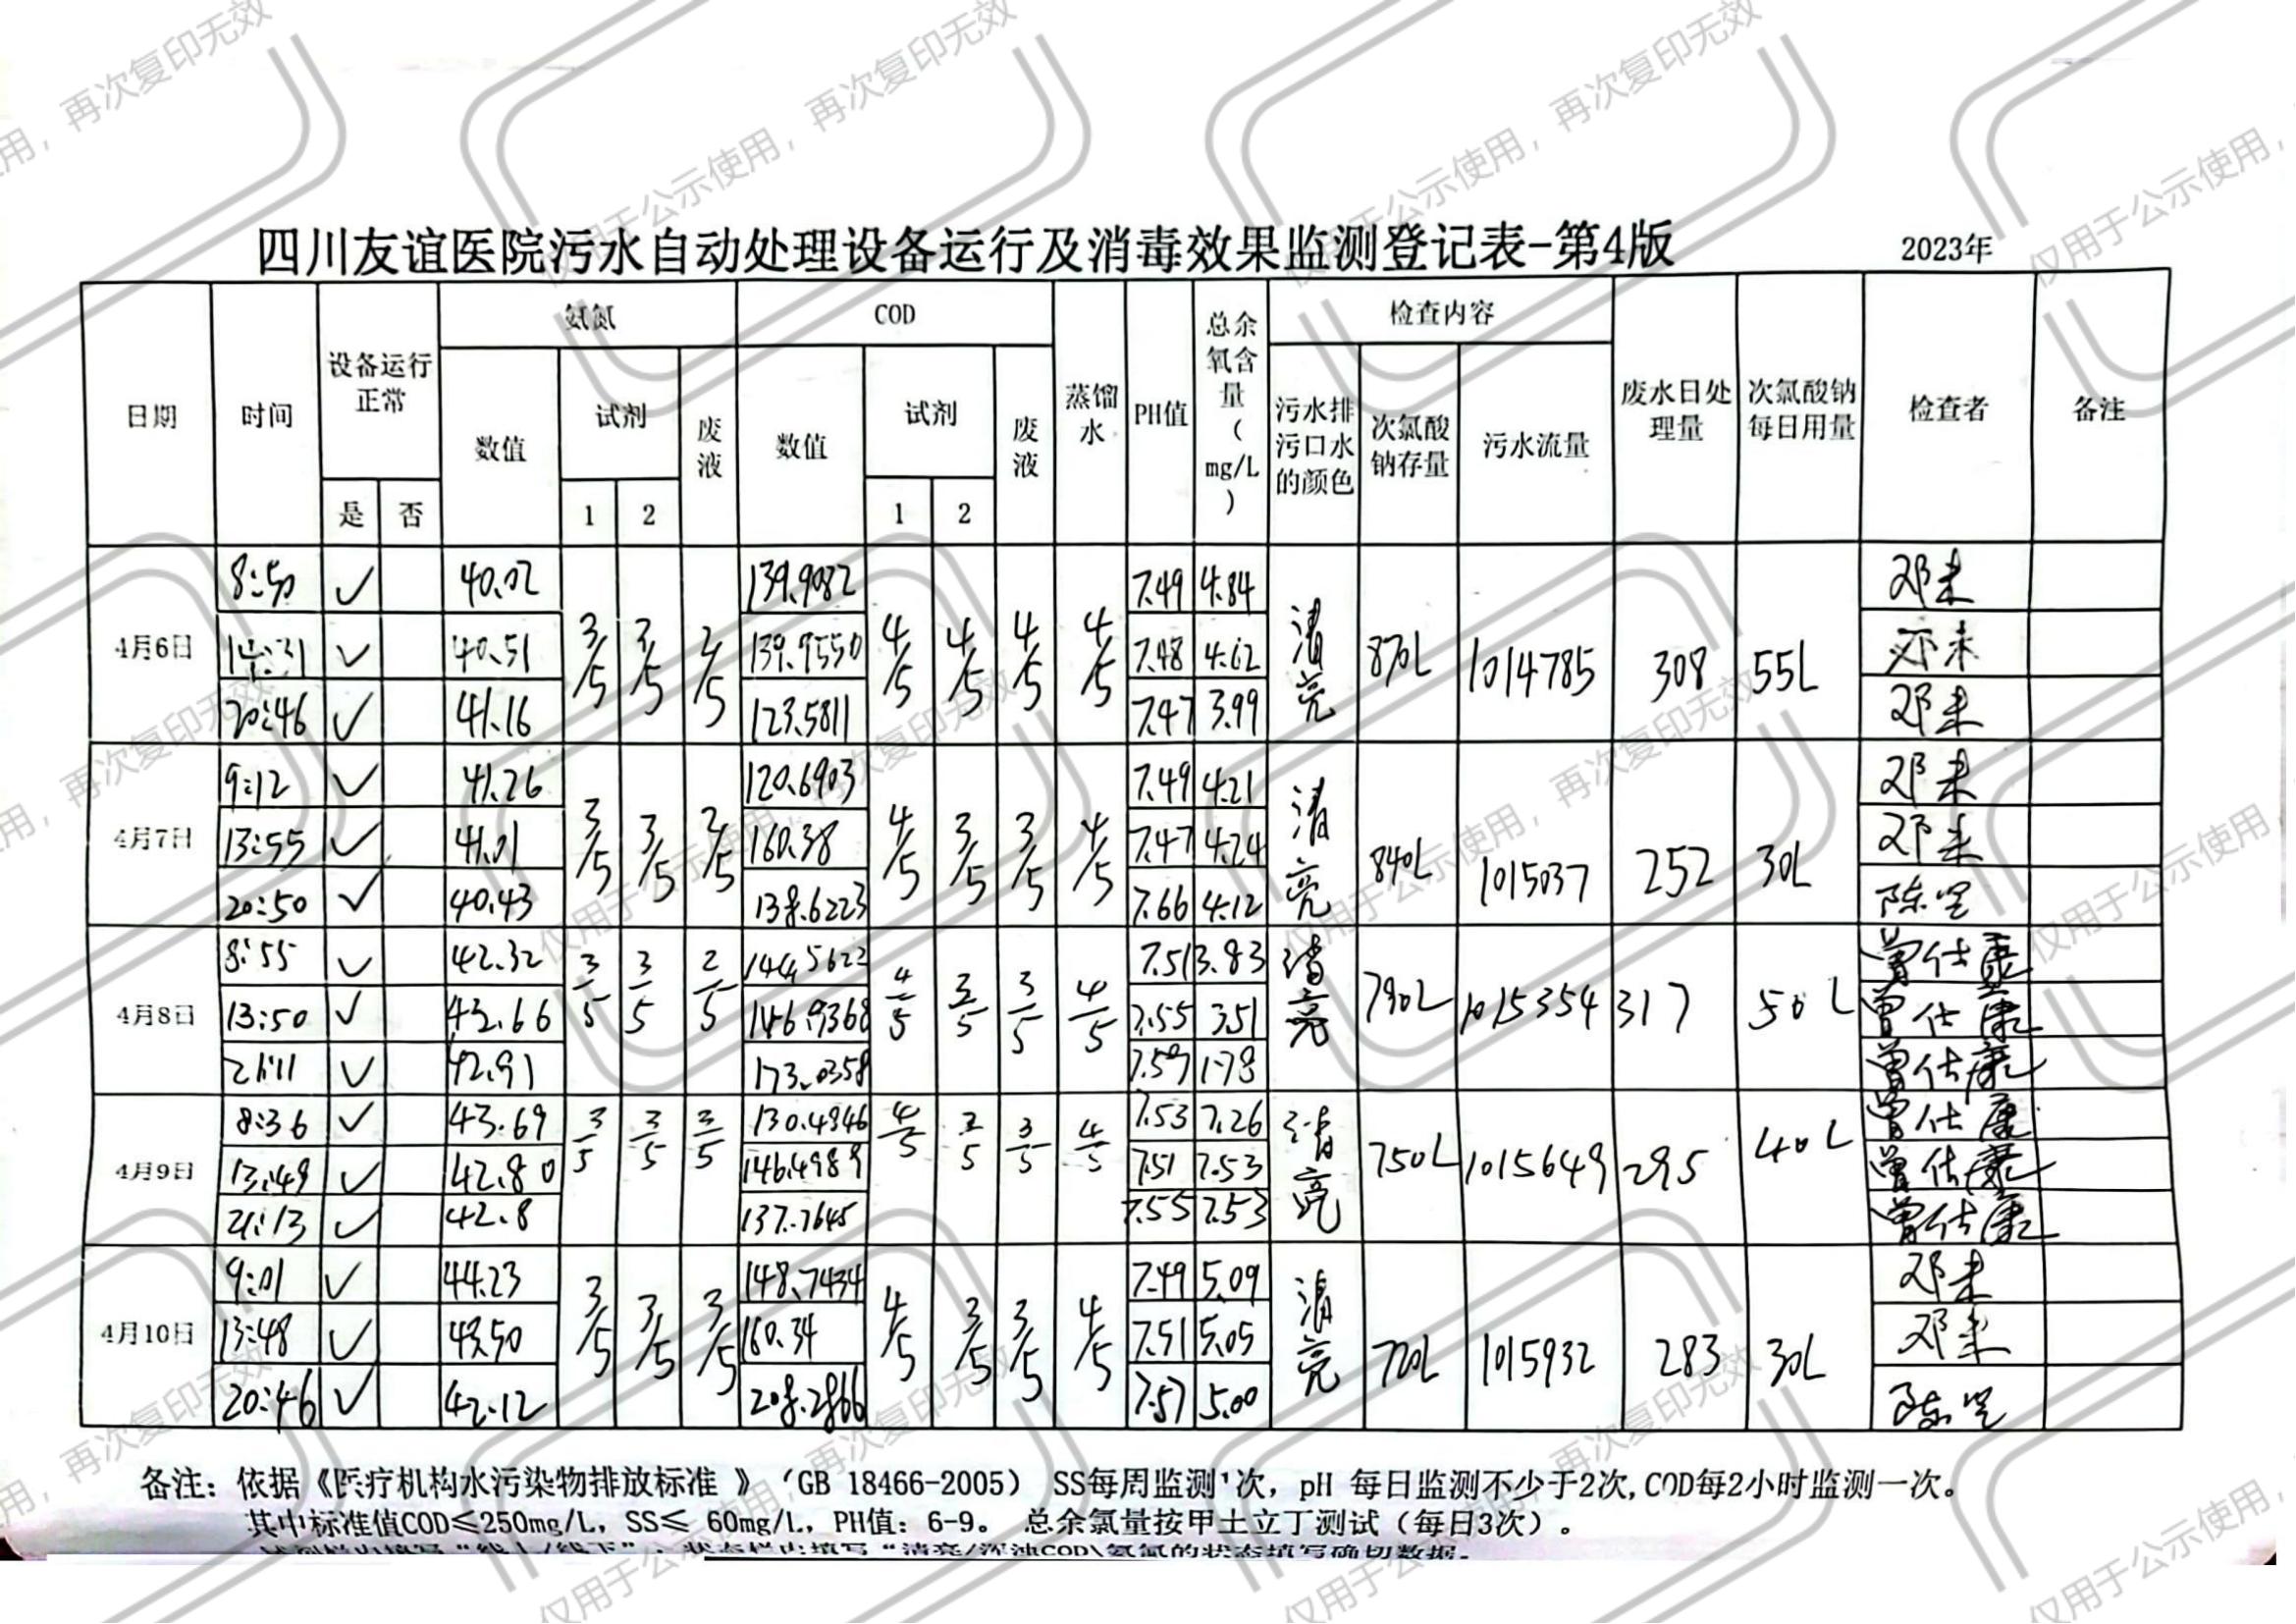 四川友谊医院污水自动处理设备运行及消毒效果监测登记表-第4版 2023年
日期 时间 设备运行正常 氨氮 COD 蒸馏水 PH值 总余氧含量(mg/L) 检查内容 废水日处理量 次氯酸钠每日用量 检查者 备注
是 否 数值 试剂 废液 数值 试剂 废液 污水排污口水的颜色 次氯酸钠存量 污水流量
1 2 1 2
4月6日 3/5 3/5 2/5 4/5 4/5 4/5 4/5 清亮 870L 1014785 308 55L
8:50 ✓ 40.02 139.9082 7.49 4.84 邓未
14:31 ✓ 40.51 139.9550 7.48 4.62 邓未
20:46 ✓ 41.16 123.5811 7.47 3.99 邓未
4月7日 3/5 3/5 2/5 4/5 3/5 3/5 4/5 清亮 840L 1015037 252 30L
9:12 ✓ 41.26 120.6903 7.49 4.21 邓未
13:55 ✓ 41.01 160.38 7.47 4.24 邓未
20:50 ✓ 40.43 138.6223 7.66 4.12 陈
4月8日 3/5 3/5 2/5 4/5 3/5 3/5 4/5 清亮 790L 1015354 317 50L
8:55 ✓ 42.32 144.5622 7.51 3.83 曾仕康
13:50 ✓ 43.66 146.9368 7.55 3.51 曾仕康
21:11 ✓ 42.91 173.0358 1.78 曾仕康
4月9日 3/5 3/5 2/5 4/5 3/5 3/5 4/5 清亮 750L 1015649 295 40L
8:36 ✓ 43.69 130.4946 7.53 7.26 曾仕康
13:49 ✓ 42.80 146.4989 7.51 7.53 曾仕康
21:13 ✓ 42.8 137.7645 7.55 7.53 曾仕康
4月10日 3/5 3/5 3/5 4/5 3/5 3/5 4/5 清亮 720L 1015932 283 30L
9:01 ✓ 44.23 148.7434 7.49 5.09 邓未
13:48 ✓ 43.50 160.34 7.51 5.05 邓未
20:46 ✓ 42.12 208.2866 7.57 5.00 陈
备注：依据《医疗机构水污染物排放标准 》（GB 18466-2005） SS每周监测1次，pH 每日监测不少于2次,COD每2小时监测一次。
其中标准值COD≤250mg/L，SS≤ 60mg/L，PH值：6-9。 总余氯量按甲土立丁测试（每日3次）。
仅用于公示使用，再次复印无效
仅用于公示使用，再次复印无效
仅用于公示使用，再次复印无效
仅用于公示使用，再次复印无效
仅用于公示使用，再次复印无效
仅用于公示使用，再次复印无效